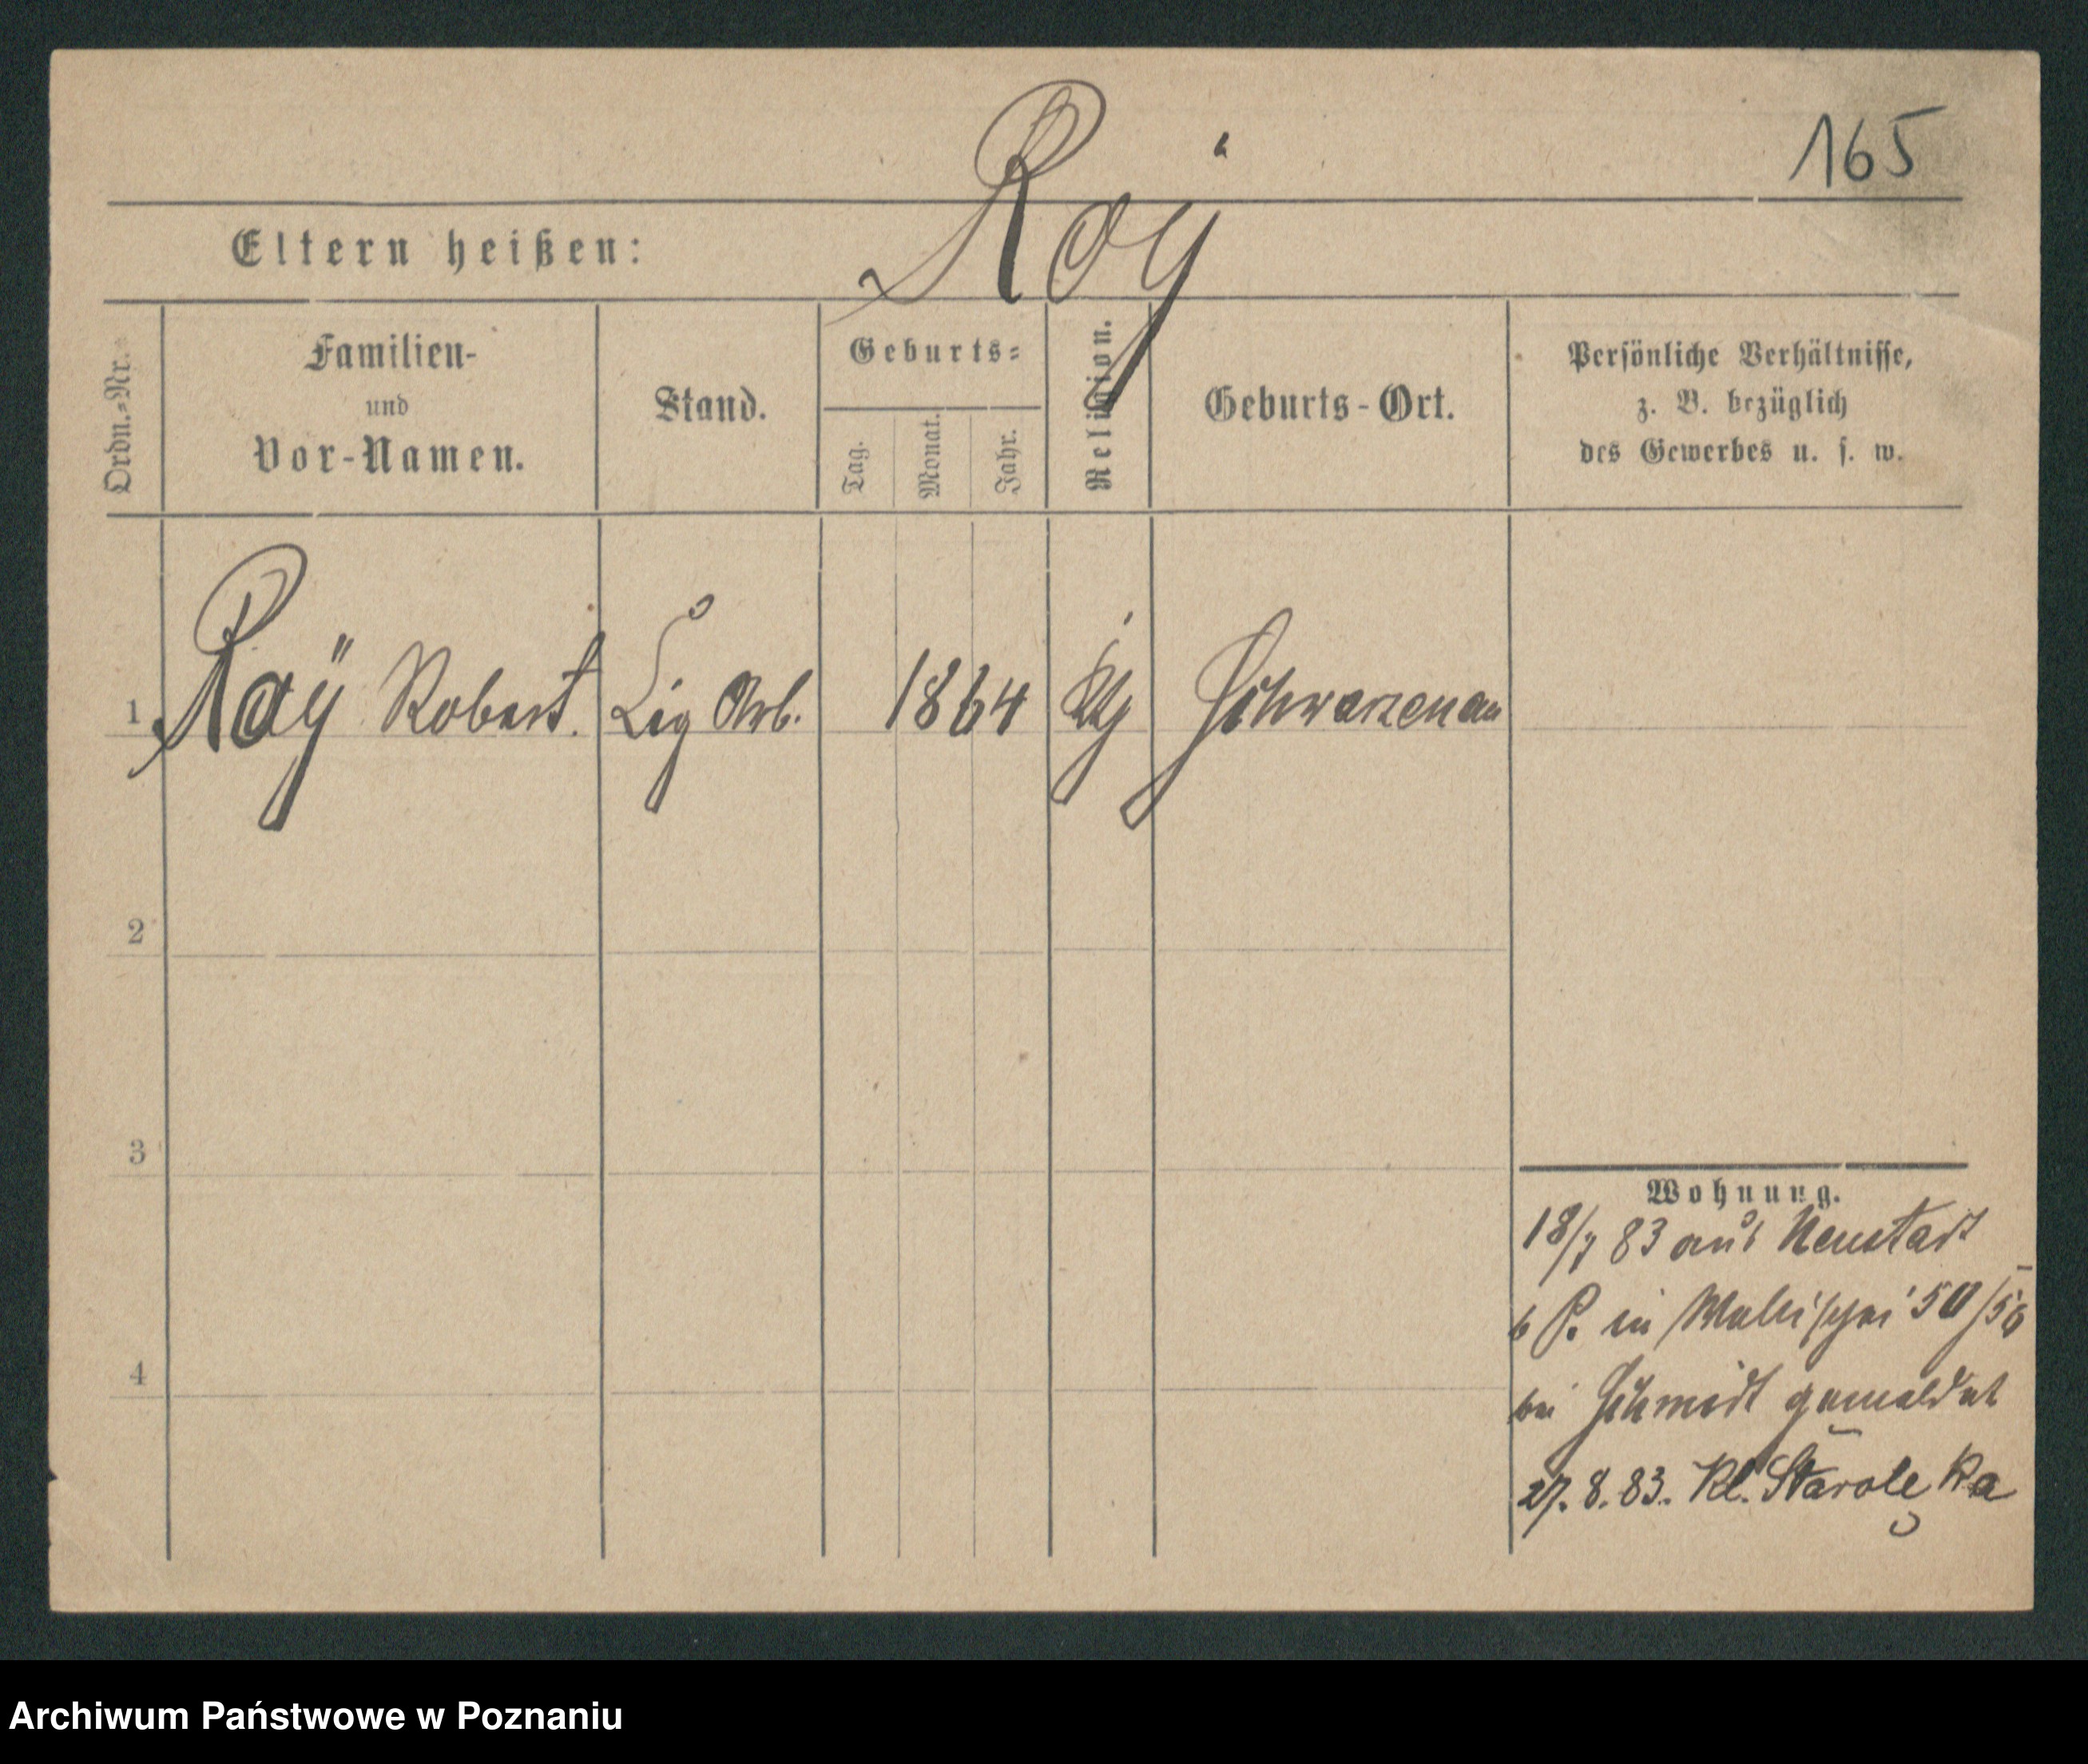 165
Roÿ
Eltern heißen:
Ordn.=Nr.
Familien-
und
Vor-Namen.
Stand.
Geburts=
Tag.
Monat.
Jahr.
Religion.
Geburts-Ort.
Persönliche Verhältnisse,
z. B. bezüglich
des Gewerbes u. s. w.
1 Roÿ Robert. Zig Arb. 1864 Schwarzenau
2
3
4
Wohnung.
18/7 83 aus Neustadt
b P. in Wallischei 50/56
bei Schmidt gemeldet
27. 8. 83. Kl. Starolęka
Archiwum Państwowe w Poznaniu